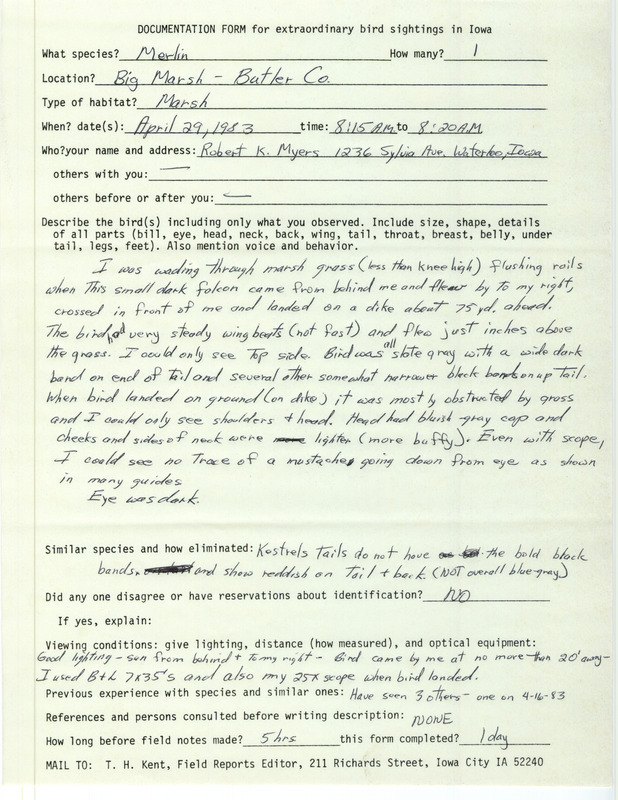 DOCUMENTATION FORM for extraordinary bird sightings in Iowa
What species? Merlin How many? 1
Location? Big Marsh - Butler Co.
Type of habitat? Marsh
When? date(s): April 29, 1983 time: 8:15 A.M. to 8:20 A.M.
Who? your name and address: Robert K. Myers 1236 Sylvia Ave. Waterloo, Iowa
others with you: —
others before or after you: —
Describe the bird(s) including only what you observed. Include size, shape, details
of all parts (bill, eye, head, neck, back, wing, tail, throat, breast, belly, under
tail, legs, feet). Also mention voice and behavior.
I was wading through marsh grass (less than knee high) flushing rails
when this small dark falcon came from behind me and flew by to my right,
crossed in front of me and landed on a dike about 75 yd. ahead.
The bird had very steady wing beats (not fast) and flew just inches above
the grass. I could only see Top side. Bird was all slate gray with a wide dark
band on end of Tail and several other somewhat narrower black bands on up Tail.
When bird landed on ground (on dike) it was mostly obstructed by grass
and I could only see shoulders + head. Head had bluish-gray cap and
cheeks and sides of neck were lighter (more buffy). Even with scope,
I could see no Trace of a mustache going down from eye as shown
in many guides
Eye was dark.
Similar species and how eliminated: Kestrels Tails do not have the bold black
bands, and show reddish on Tail + back. (NOT overall blue-gray)
Did any one disagree or have reservations about identification? NO
If yes, explain:
Viewing conditions: give lighting, distance (how measured), and optical equipment:
Good lighting - sun from behind + to my right - Bird came by me at no more than 20' away -
I used B+L 7X35's and also my 25X scope when bird landed.
Previous experience with species and similar ones: Have seen 3 others - one on 4-16-83
References and persons consulted before writing description: NONE
How long before field notes made? 5 hrs this form completed? 1 day
MAIL TO: T. H. Kent, Field Reports Editor, 211 Richards Street, Iowa City IA 52240